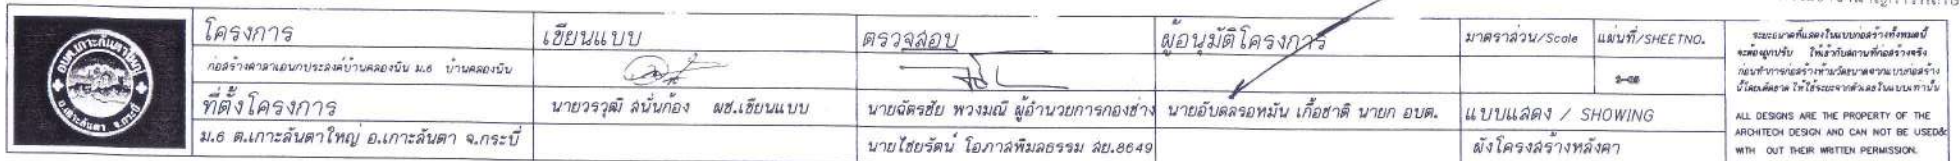 อบต.เกาะลันตาใหญ่
อ.เกาะลันตา จ.กระบี่
โครงการ
ก่อสร้างศาลาเอนกประสงค์บ้านคลองนิน ม.6 บ้านคลองนิน
ที่ตั้งโครงการ
ม.6 ต.เกาะลันตาใหญ่ อ.เกาะลันตา จ.กระบี่
เขียนแบบ
นายวรวุฒิ สนั่นก้อง ผช.เขียนแบบ
ตรวจสอบ
นายฉัตรชัย พวงมณี ผู้อำนวยการกองช่าง
นายไชยรัตน์ โอภาสพิมลธรรม สย.8649
ผู้อนุมัติโครงการ
นายอับดลรอหมัน เกื้อชาติ นายก อบต.
มาตราส่วน/Scale
แผ่นที่/SHEETNO.
แบบแสดง / SHOWING
ผังโครงสร้างหลังคา
ระยะขนาดที่แสดงในแบบก่อสร้างทั้งหมดนี้
จะต้องถูกปรับ ให้เข้ากับสถานที่ก่อสร้างจริง
ก่อนทำการก่อสร้างห้ามวัดขนาดจากแบบก่อสร้าง
นี้โดยเด็ดขาด ให้ใช้ระยะจากตัวเลขในแบบเท่านั้น
ALL DESIGNS ARE THE PROPERTY OF THE
ARCHITECH DESIGN AND CAN NOT BE USED&
WITH OUT THEIR WRITTEN PERMISSION.